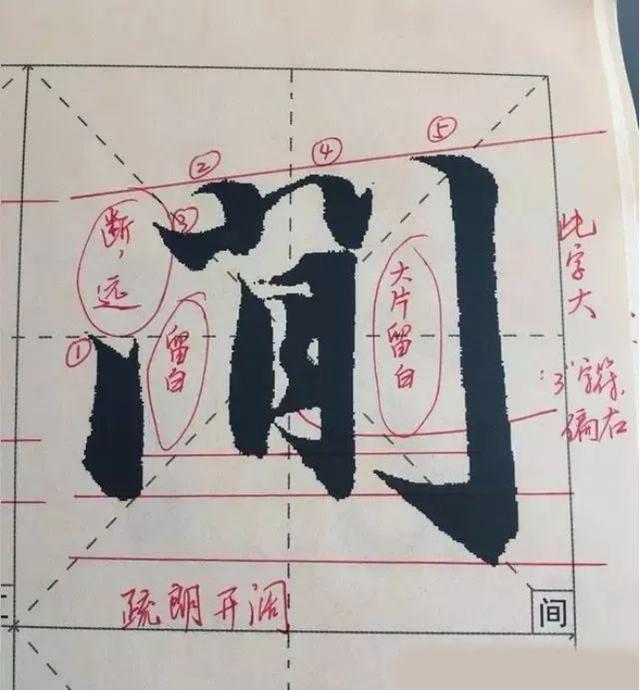 ⑤
④
②
③
断，远
①
留白
大片留白
间
此字大
"3"字符，
偏右
疏朗开阔
间